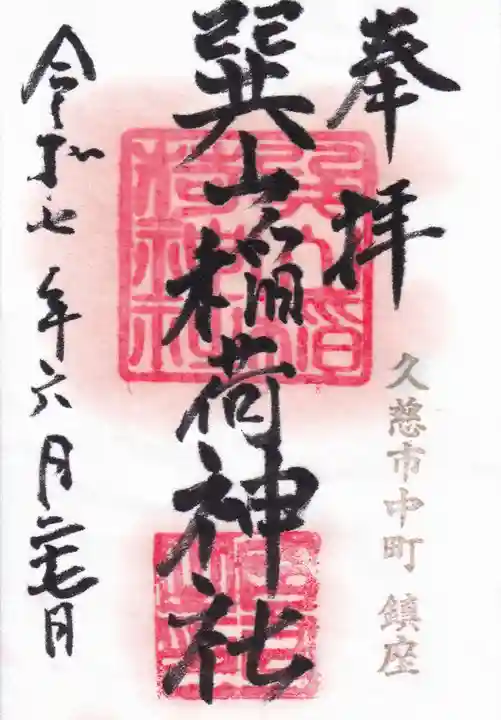 奉拝
久慈市中町 鎮座
巽山稲荷神社
令和七年六月二十七日